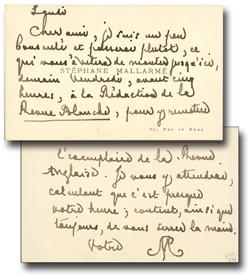 Lundi
Cher ami, je suis un peu
bousculé et passerais plutôt, ce
qui vous évitera de monter jusqu'ici,
STÉPHANE MALLARMÉ
demain Vendredi, avant cinq
heures, à la Rédaction de la
Revue Blanche, pour y remettre
89, RUE DE ROME
l'exemplaire de la Revue
Anglaise. Je vous y attendrai,
calculant que c'est presque
votre heure; content, ainsi que
toujours, de vous serrer la main.
Votre
SM